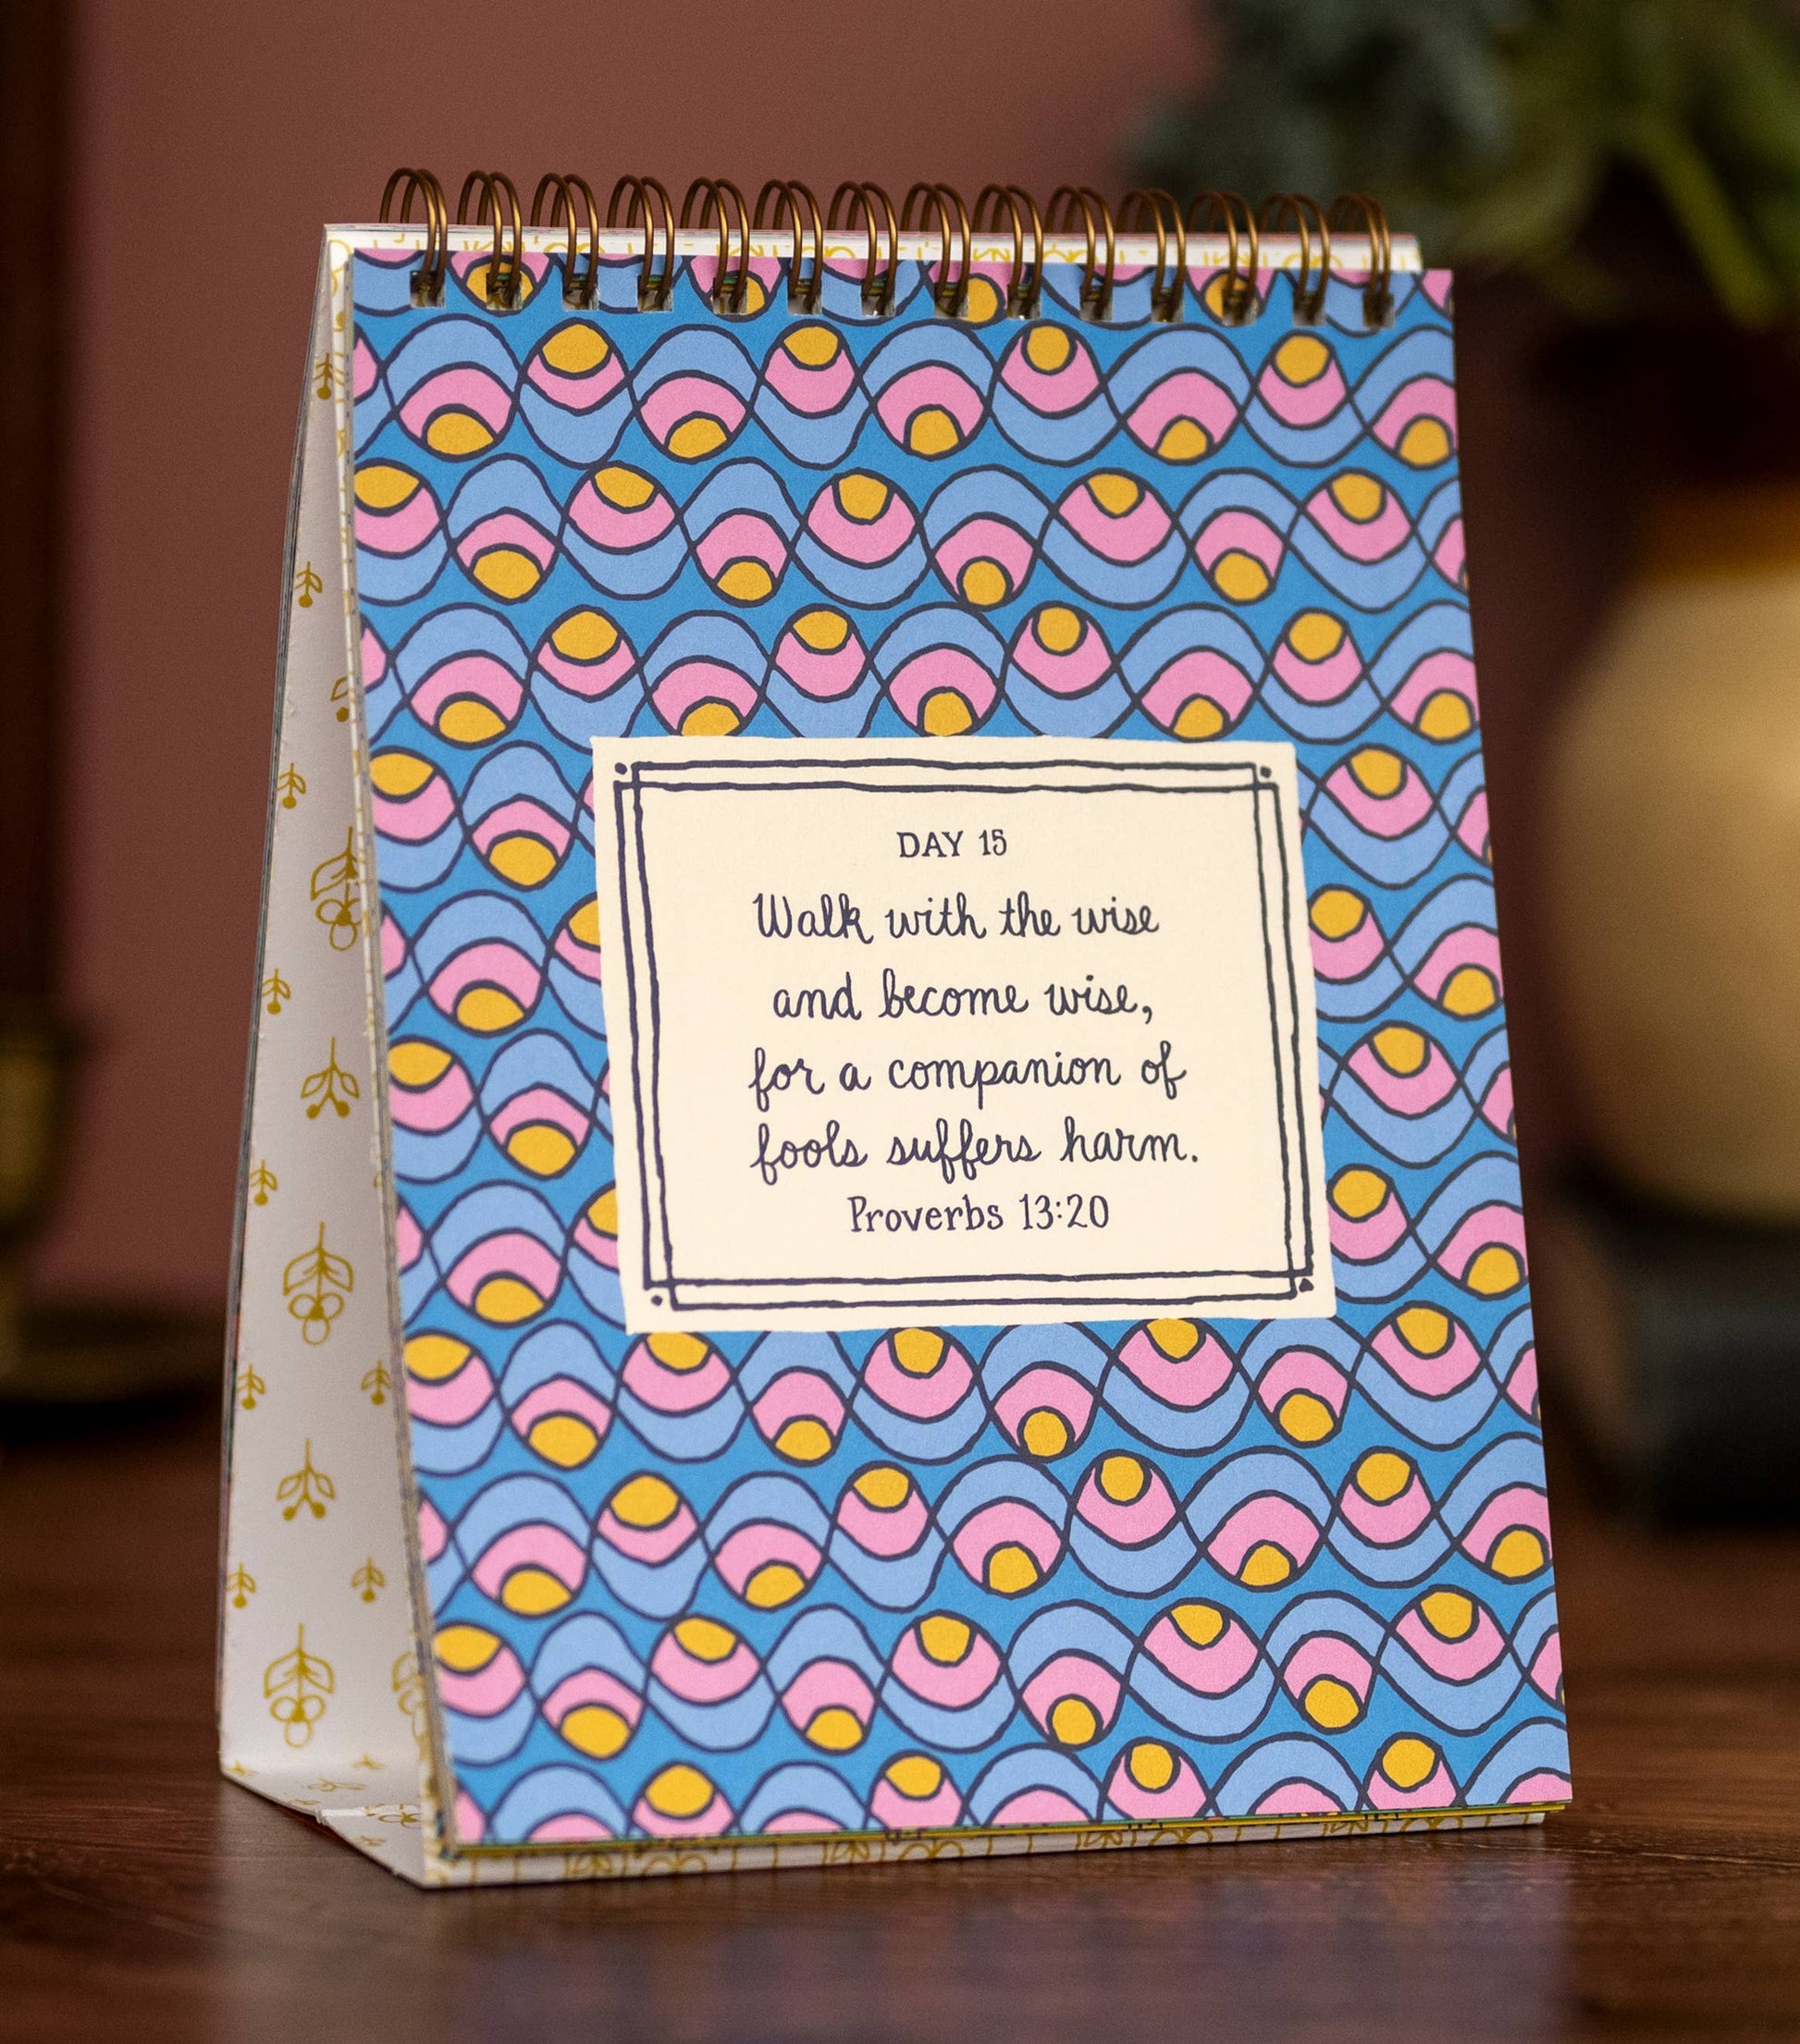 DAY 15
Walk with the wise
and become wise,
for a companion of
fools suffers harm.
Proverbs 13:20